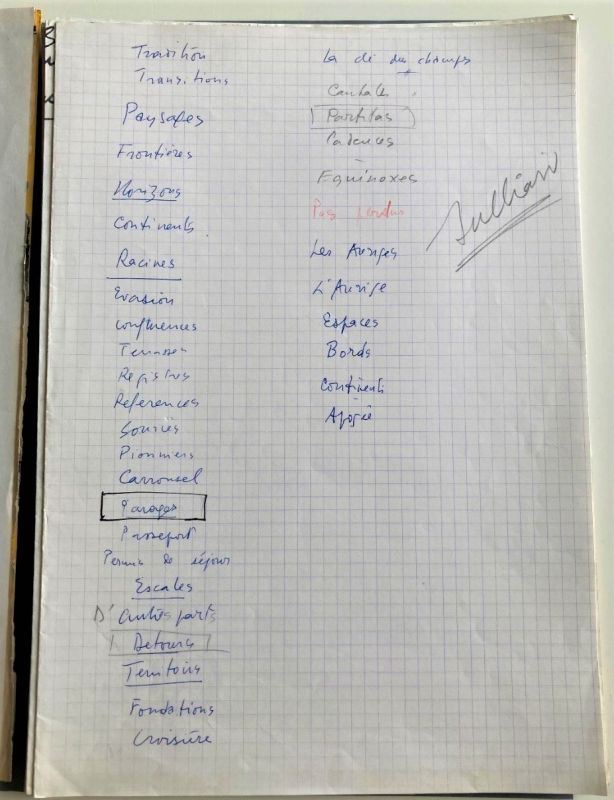 Tradition
Transitions
Paysages
Frontières
Horizons
Continents
Racines
Evasion
Confluences
Terrasses
Registres
Références
Sources
Pionniers
Carrousel
Parages
Passeport
Permis de séjour
Escales
D'autres parts
Detours
Territoires
Fondations
Croisière
La clé des champs
Cantates
Partitas
Cadences
Equinoxes
Pas perdus
Les Auriges
L'Aurige
Espaces
Bords
Continents
Apogée
Julliard